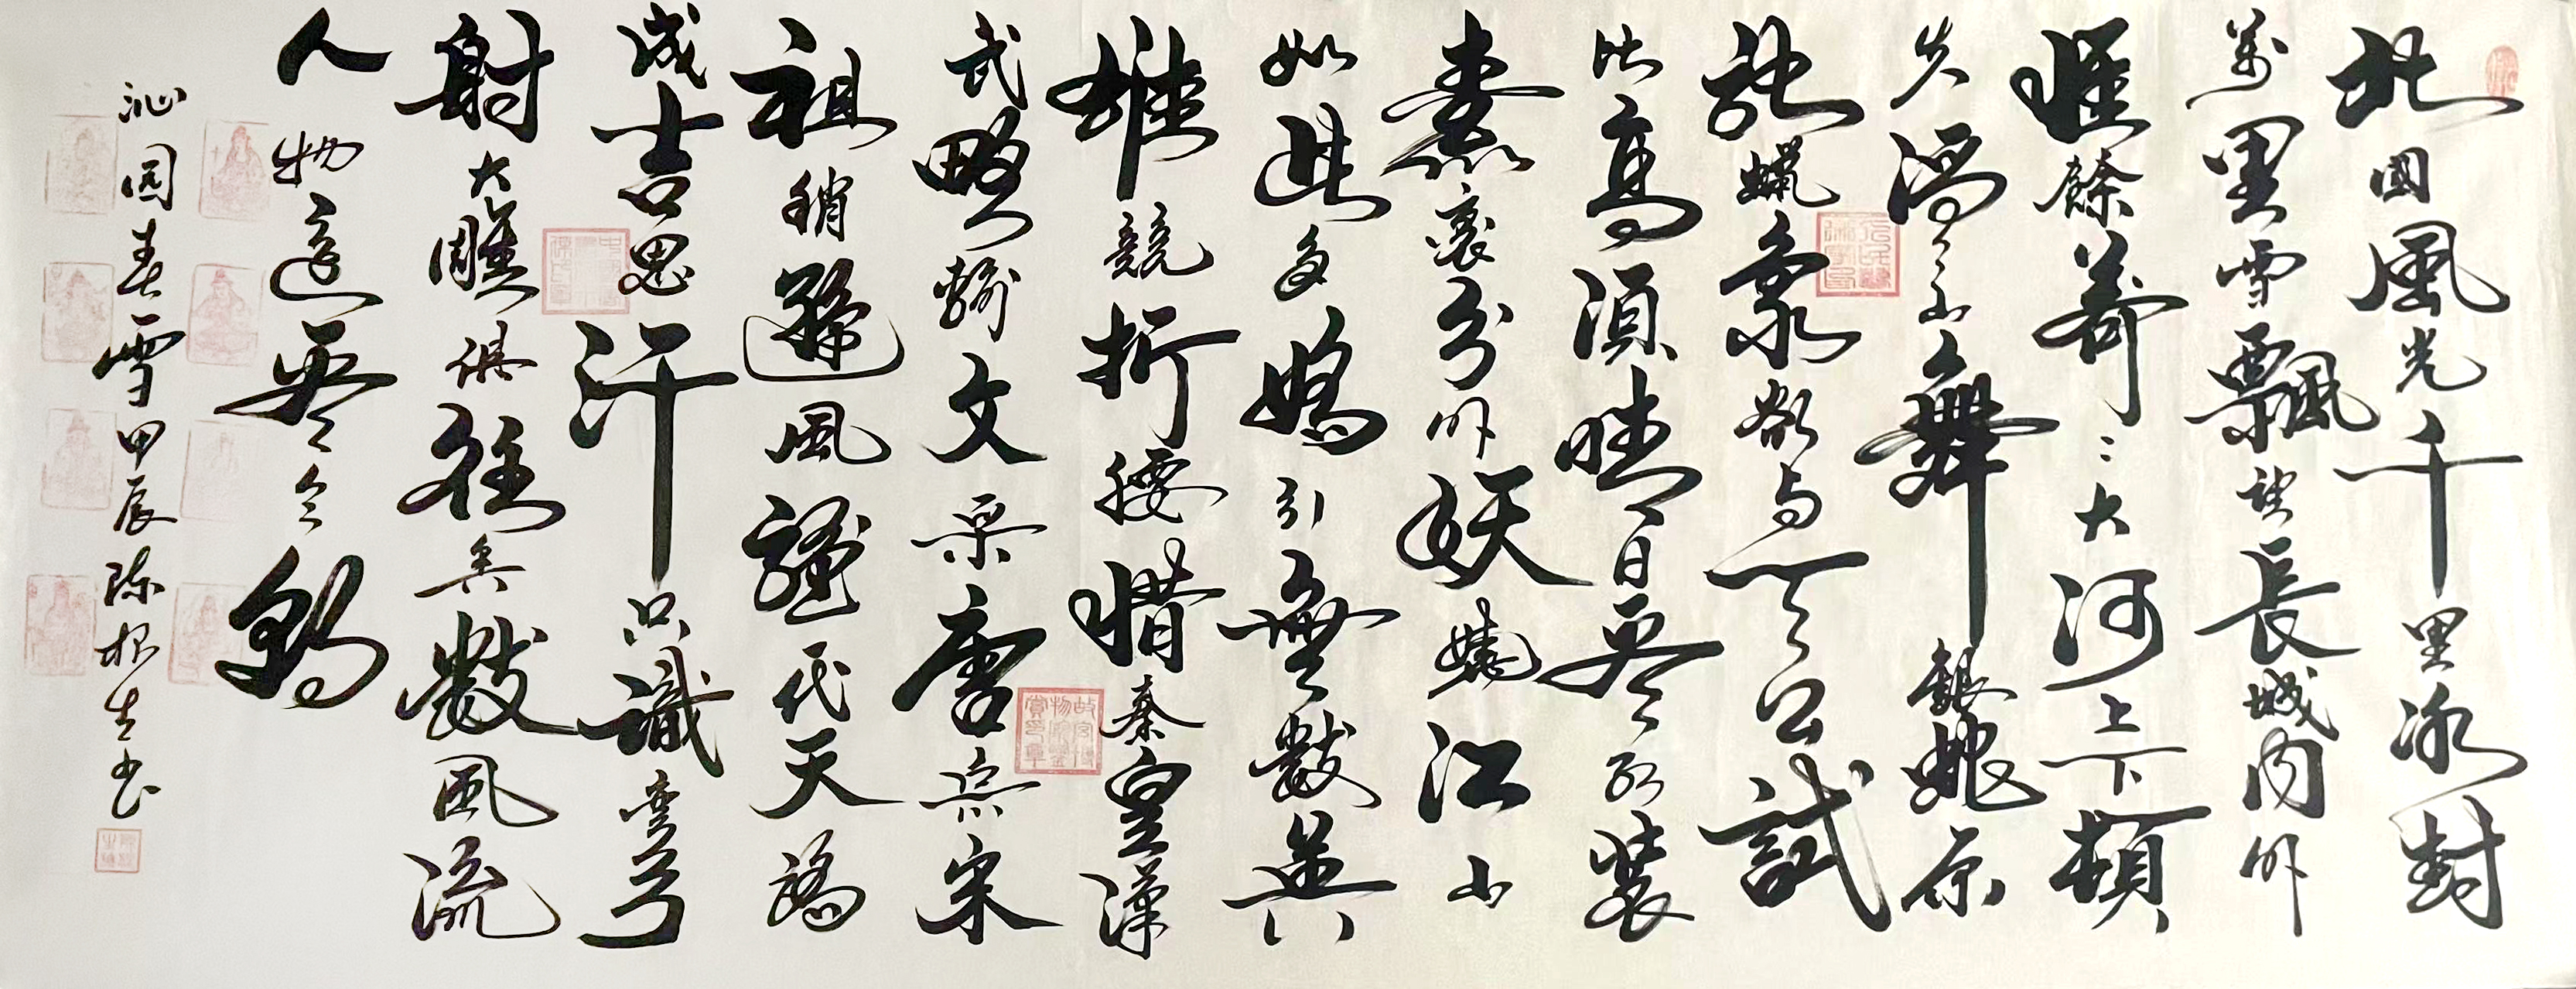 北國風光千里冰封
萬里雪飄望長城内外
惟餘莽〻大河上下頓
失滔〻山舞銀蛇原
馳蠟象欲与天公試
比高須晴日看红装
素裹分外妖嬈江山
如此多嬌引無數英
雄競折腰惜秦皇漢
武略輸文采唐宗宋
祖稍遜風騷代天驕
成吉思汗只識彎弓
射大雕俱往矣數風流
人物還看今朝
沁园春雪甲辰陈根生书